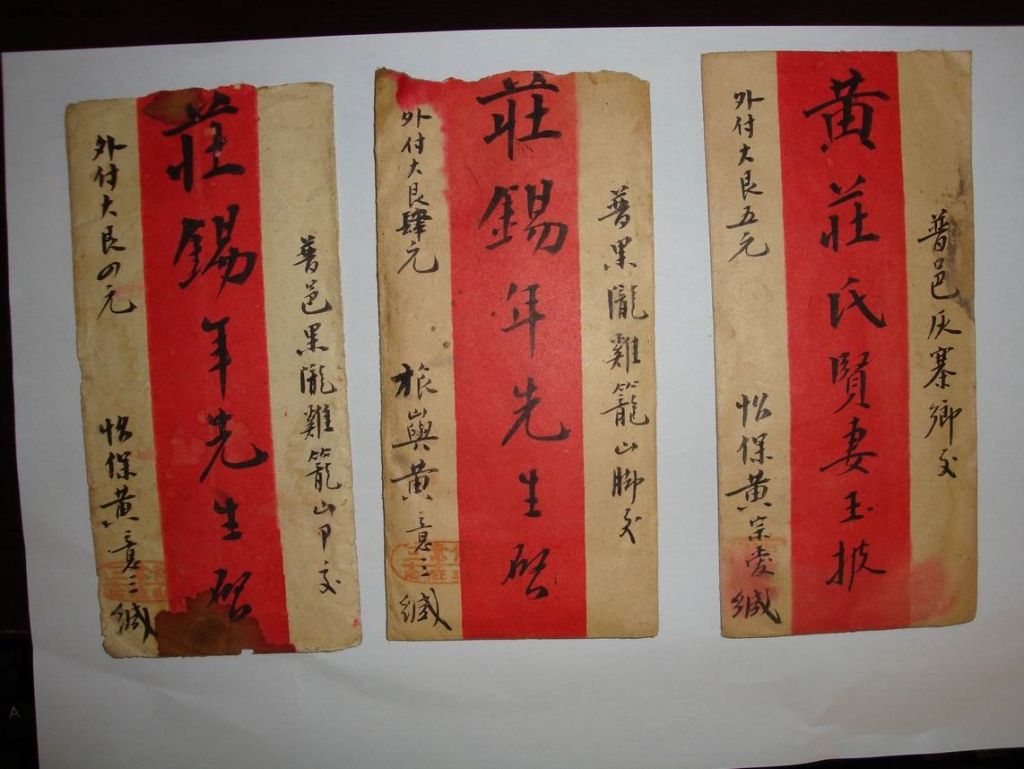 普邑果隴雞籠山下交
莊錫年先生啟
外付大艮四元
怡保黄意三緘
普果隴雞籠山腳交
莊錫年先生啟
外付大艮肆元
旅嶼黄意三緘
普邑灰寨鄉交
黄莊氏賢妻玉披
外付大艮五元
怡保黄宗愛緘